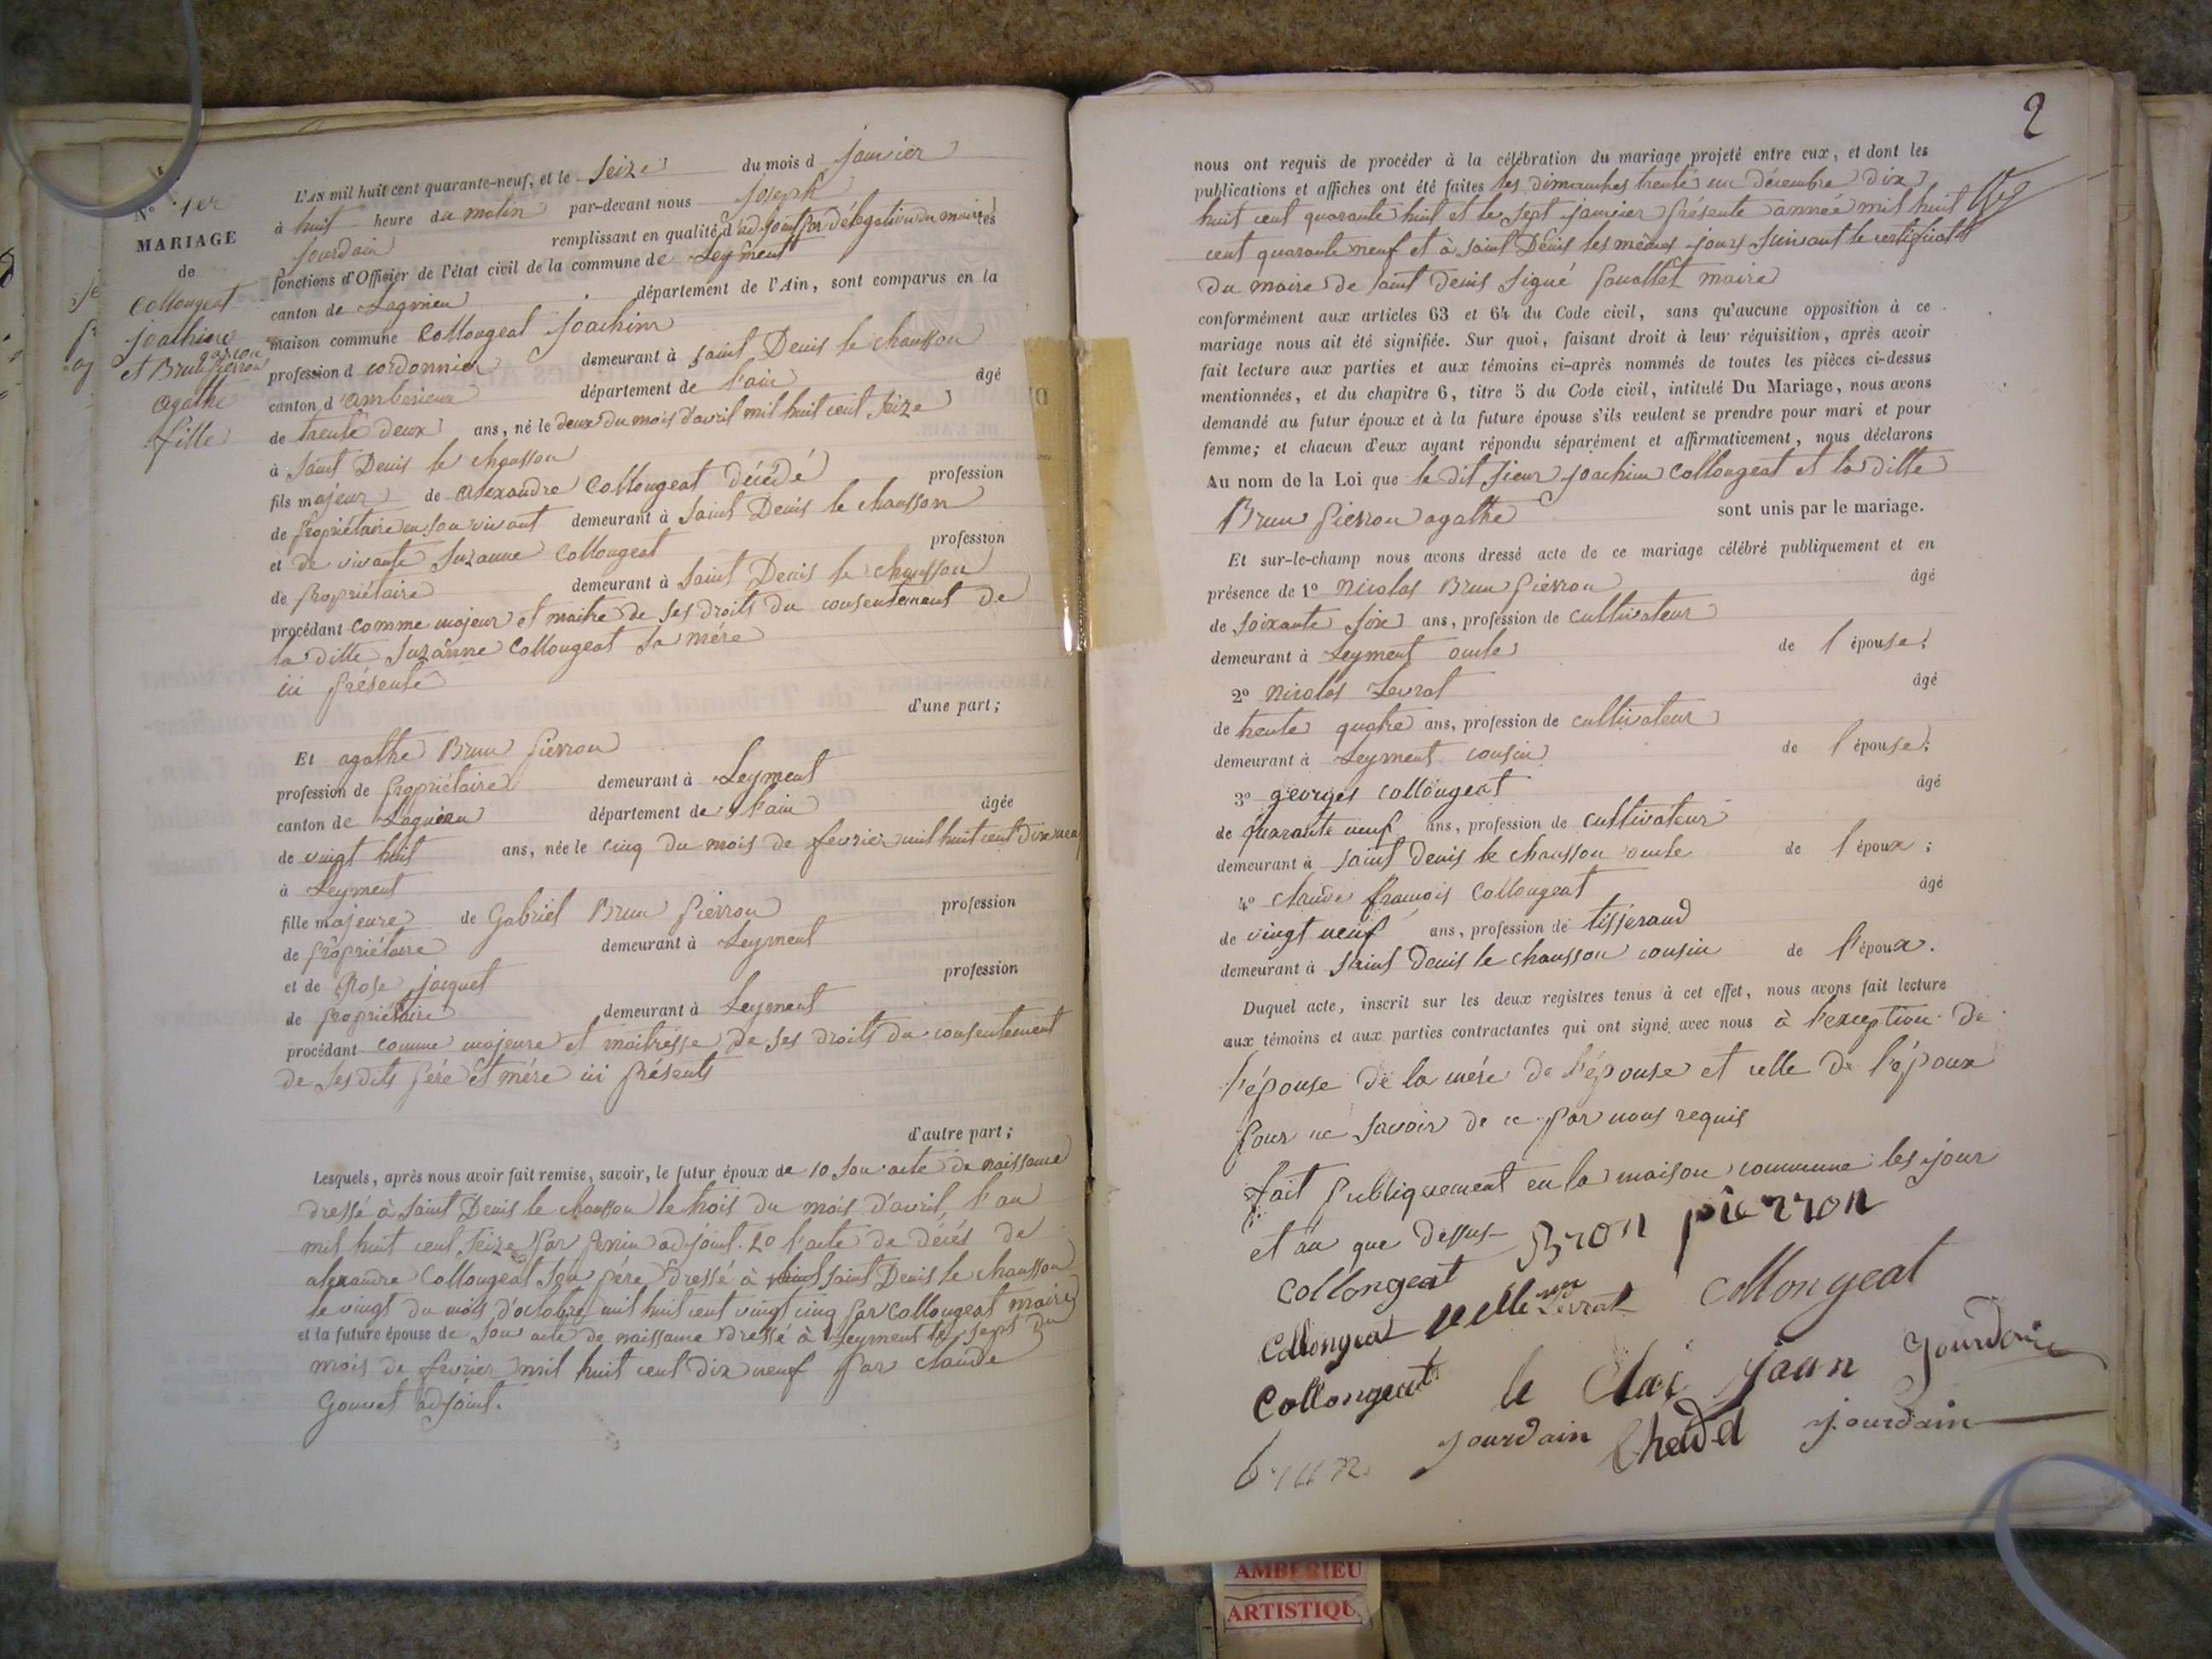 N° 1er
MARIAGE
de
Collongeat
Joachim
garçon
et Brun Pierron
agathe
fille
L'AN mil huit cent quarante-neuf, et le seize du mois d janvier
à huit heure du matin par-devant nous joseph
jourdain remplissant en qualité d'adjoint par délégation du maire les
fonctions d'Officier de l'état civil de la commune de Leyment
canton de Lagnieu département de l'Ain, sont comparus en la
maison commune Collongeat joachim
profession d cordonnier demeurant à saint Denis le chausson
canton d'amberieux département de l'ain âgé
de trente deux ans, né le deux du mois d'avril mil huit cent seize
à saint Denis le chausson
fils majeur de alexandre Collongeat décédé profession
de propriétaire en son vivant demeurant à saint Denis le chausson
et de vivante suzanne Collongeat profession
de propriétaire demeurant à saint Denis le chausson
procédant comme majeur et maitre de ses droits du consentement de
la ditte suzanne Collongeat sa mére
ici présente
d'une part;
Et agathe Brun pierron
profession de propriétaire demeurant à Leyment
canton de Lagnieu département de l'ain âgée
de vingt huit ans, née le cinq du mois de fevrier mil huit cent dix neuf
à Leyment
fille majeure de Gabriel Brun pierron profession
de propriétaire demeurant à Leyment
et de Rose jacquet profession
de propriétaire demeurant à Leyment
procédant comme majeure et maitresse de ses droits du consentement
de ses dits pére et mére ici présents
d'autre part;
Lesquels, après nous avoir fait remise, savoir, le futur époux de 1o son acte de naissance
dressé à saint Denis le chausson le trois du mois d'avril, l'an
mil huit cent seize par perrin adjoint. 2o l'acte de décés de
alexandre Collongeat son pére dressé à saint Denis le chausson
le vingt du mois d'octobre mil huit cent vingt cinq par Collongeat maire
et la future épouse de son acte de naissance dressé à Leyment le sept du
mois de fevrier mil huit cent dix neuf par claude
Gonnet adjoint.
2
nous ont requis de procéder à la célébration du mariage projeté entre eux, et dont les
publications et affiches ont été faites les dimanches trente un décembre dix
huit cent quarante huit et le sept janvier présente année mil huit
cent quarante neuf et à saint Denis les mêmes jours suivant le certificat
du maire de saint Denis signé maire
conformément aux articles 63 et 64 du Code civil, sans qu'aucune opposition à ce
mariage nous ait été signifiée. Sur quoi, faisant droit à leur réquisition, après avoir
fait lecture aux parties et aux témoins ci-après nommés de toutes les pièces ci-dessus
mentionnées, et du chapitre 6, titre 5 du Code civil, intitulé Du Mariage, nous avons
demandé au futur époux et à la future épouse s'ils veulent se prendre pour mari et pour
femme; et chacun d'eux ayant répondu séparément et affirmativement, nous déclarons
Au nom de la Loi que le dit sieur joachim Collongeat et la ditte
Brun pierron agathe sont unis par le mariage.
Et sur-le-champ nous avons dressé acte de ce mariage célébré publiquement et en
présence de 1° nicolas Brun pierron âgé
de soixante six ans, profession de cultivateur
demeurant à Leyment oncle de l'épouse;
2° nicolas Levrat âgé
de trente quatre ans, profession de cultivateur
demeurant à Leyment cousin de l'épouse;
3° georges collongeat âgé
de quarante neuf ans, profession de cultivateur
demeurant à saint denis le chausson oncle de l'époux;
4° claude francois Collongeat âgé
de vingt neuf ans, profession de tisserand
demeurant à saint denis le chausson cousin de l'époux.
Duquel acte, inscrit sur les deux registres tenus à cet effet, nous avons fait lecture
aux témoins et aux parties contractantes qui ont signé avec nous à l'exception de
l'épouse de la mére de l'épouse et celle de l'époux
pour ne savoir de ce par nous requis
fait publiquement en la maison commune les jour
et an que dessus
Bron pierron
Collongeat
Levrat
Collongeat
Collongeat
Collongeat
jean jourdain
brun
jourdain
jourdain
AMBERIEU
ARTISTIQU